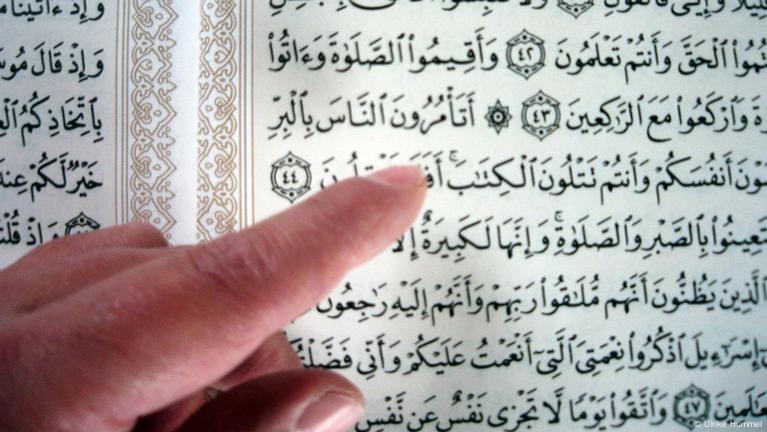 وَإِيَّٰىَ فَٱتَّقُونِ
تُمُوا۟ ٱلْحَقَّ وَأَنتُمْ تَعْلَمُونَ ٤٢ وَأَقِيمُوا۟ ٱلصَّلَوٰةَ وَءَاتُوا۟
ةَ وَٱرْكَعُوا۟ مَعَ ٱلرَّٰكِعِينَ ٤٣ ۞ أَتَأْمُرُونَ ٱلنَّاسَ بِٱلْبِرِّ
سَوْنَ أَنفُسَكُمْ وَأَنتُمْ تَتْلُونَ ٱلْكِتَٰبَ ۚ ٤٤
تَعِينُوا۟ بِٱلصَّبْرِ وَٱلصَّلَوٰةِ ۚ وَإِنَّهَا لَكَبِيرَةٌ إِلَّا
ٱلَّذِينَ يَظُنُّونَ أَنَّهُم مُّلَٰقُوا۟ رَبِّهِمْ وَأَنَّهُمْ إِلَيْهِ رَٰجِعُونَ
إِسْرَٰٓءِيلَ ٱذْكُرُوا۟ نِعْمَتِىَ ٱلَّتِىٓ أَنْعَمْتُ عَلَيْكُمْ وَأَنِّى فَضَّلْتُ
عَٰلَمِينَ ٤٧ وَٱتَّقُوا۟ يَوْمًا لَّا تَجْزِى نَفْسٌ عَن نَّفْسٍ
وَإِذْ ءَاتَيْنَا
وَإِذْ قَالَ مُوسَ
بِٱتِّخَاذِكُمُ
خَيْرٌ لَّكُمْ عِندَ
وَإِذْ قُلْ
© Ulrike Hummel